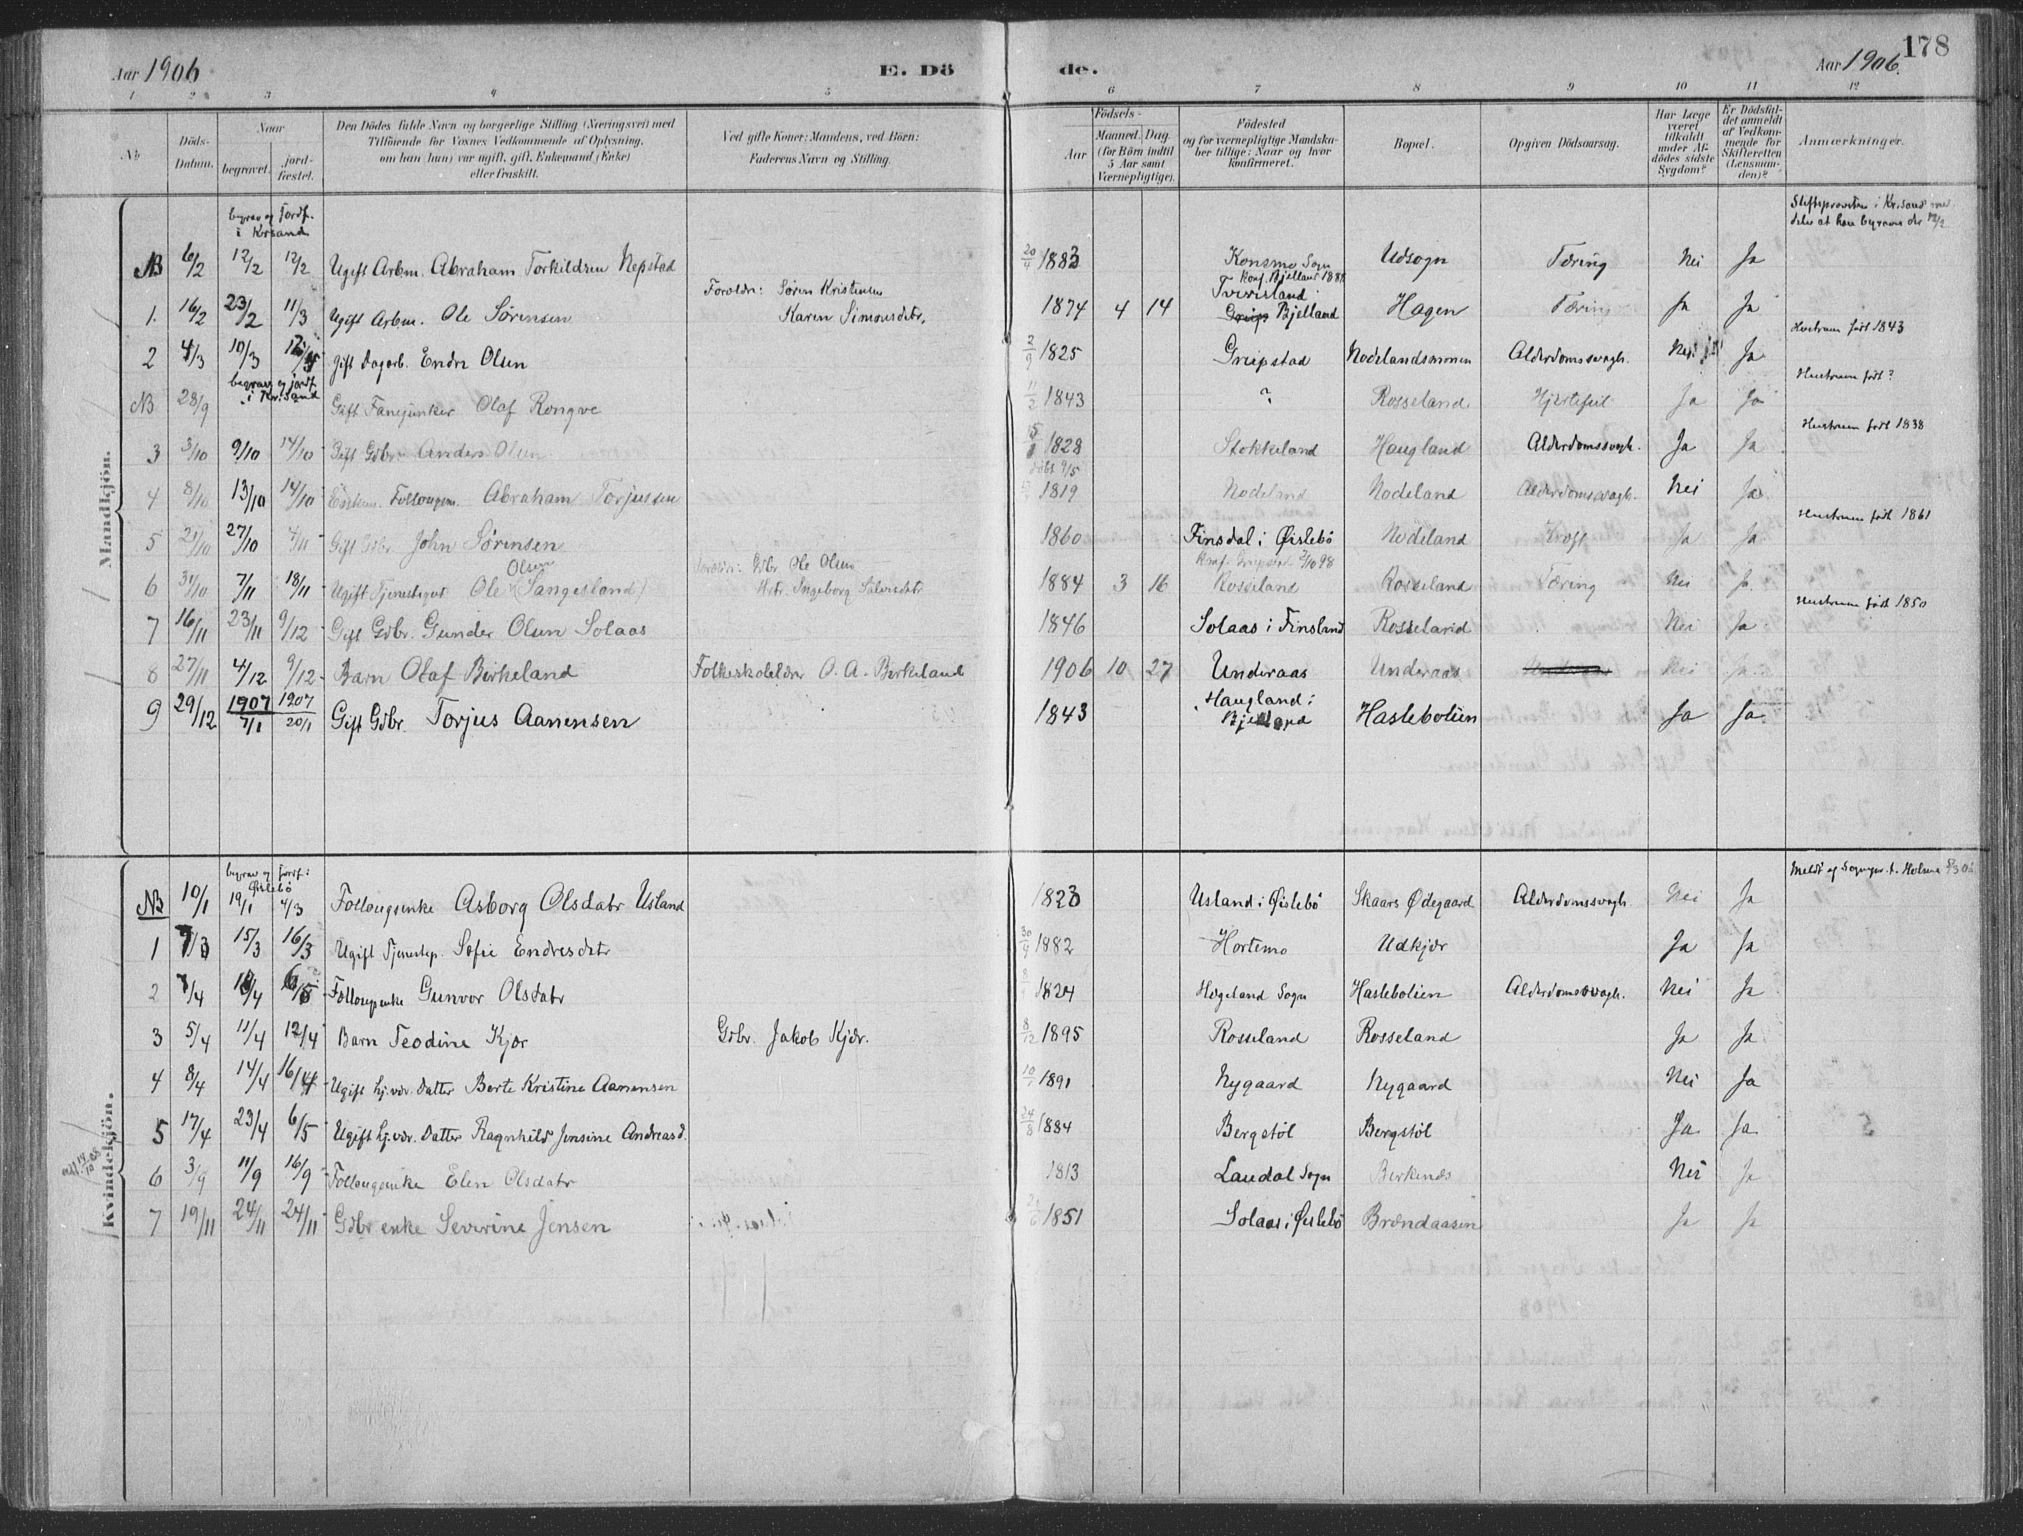 Aar 1906 E. Dö de. Aar 1906. 178
1 2 3 4 5 6 7 8 9 10 11 12
No Döds-Datum. Naar begravet. jord-fæstet. Den Dödes fulde Navn og borgerlige Stilling (Næringsvei) med Tilföiende for Voxnes Vedkommende af Oplysning, om han (hun) var ugift, gift, Enkemand (Enke) eller fraskilt. Ved gifte Koner: Mandens, ved Börn: Faderens Navn og Stilling. Födsels- Aar Maaned. Dag. (for Börn indtil 5 Aar samt Værnepligtige). Födested og for værnepligtige Mandskaber tillige: Naar og hvor konfirmeret. Bopæl. Opgiven Dödsaarsag. Har Læge været tilkaldt under Afdödes sidste Sygdom? Er Dödsfaldet anmeldt af Vedkommende for Skifteretten (Lensmanden)? Anmærkninger.
Mandkjön.
begrav og jordf. i Krsand
Stiftsprovsten i Krisand meddeler at han begraves der 12/2
NB 6/2 12/2 12/2 Ugift Arbm. Abraham Torkildsen Nepstad 20/4 1883 Konsmo Sogn Udsogn Tæring Nei Ja
Konf. Bjelland 1888
1. 16/2 23/2 11/3 Ugift Arbm. Ole Sörensen Forældr: Sören Kristensen Karen Simonsdtr. 1874 4 14 Tveitsland i Bjelland Hagen Tæring Ja Ja
2 4/3 10/3 Gift Dagarb. Endre Olsen 2/9 1825 Greipstad Nodelandsmonen Alderdomssvagh. Nei Ja Hustruen født 1843
NB 28/9 begrav og jordf. i Krisand Gift Fanejunker Olaf Rongve 11/2 1843 ? Rosseland Hjertefeil Ja Ja Hustruen født?
3 3/10 9/10 14/10 Gift Gdbr. Anders Olsen 1828 Stokkeland Haugland Alderdomssvagh. Ja Ja Hustruen født 1838
4 8/10 13/10 14/10 Enkem. Follougsm. Abraham Torjussen døbt 9/5 1819 Nodeland Nodeland Alderdomssvagh. Nei Ja
5 21/10 27/10 4/11 Gift Gdbr John Sörensen 1860 Finsdal i Øislebö Nodeland Kræft Ja Ja Hustruen født 1861
6 31/10 7/11 18/11 Ugift Tjenestegut Ole Olsen (Sangesland) Forældr: Gdbr. Ole Olsen Hstr. Ingeborg Salvesdtr 1884 3 16 Konf. Greipstad 2/10 98 Rosseland Rosseland Tæring Nei Ja
7 16/11 23/11 9/12 Gift Gdbr. Gunder Olsen Solaas 1846 Solaas i Finsland Rosseland Nei Ja Hustruen født 1850
8 27/11 4/12 9/12 Barn Olaf Birkeland Folkeskolelærer O. A. Birkeland 1906 10 27 Underaas Underaas Nei Ja
9 29/12 1907 7/1 1907 20/1 Gift Gdbr. Torjus Aanensen 1843 Haugland i Bjelland Haslebolien Ja Ja
Kvindekjön.
begrav og jordf. i Øislebö
NB 10/1 19/1 4/3 Follougsenke Asborg Olsdatr Usland 1823 Usland i Øislebö Skaars Ødegaard Alderdomssvagh. Nei Ja
Meldt af Sogneprt. Holum 8/3 06
1 7/3 15/3 16/3 Ugift Tjenestep. Sofie Endresdatr 30/9 1882 Hortemo Udkjær Ja Ja
2 7/4 Follougsenke Gunvor Olsdatr 1824 Hægeland Sogn Haslebolien Alderdomssvagh. Nei Ja
3 5/4 11/4 12/4 Barn Teodine Kjær Gdbr. Jakob Kjær. 8/12 1895 Rosseland Rosseland Ja Ja
4 8/4 14/4 16/4 Ugift hj.vær. Datter Berte Kristine Aanensen 10/1 1891 Nygaard Nygaard Nei Ja
5 17/4 23/4 6/5 Ugift hj.vær. Datter Ragnhild Jensine Andreasd. 24/8 1884 Bergstöl Bergstöl Ja Ja
6 3/9 11/9 16/9 Follougsenke Elen Olsdatr 1813 Laudal Sogn Birkenes Nei Ja
7 19/11 24/11 24/11 Gdbr enke Severine Jensen 1851 Solaas i Øislebö Brændaasen Ja Ja